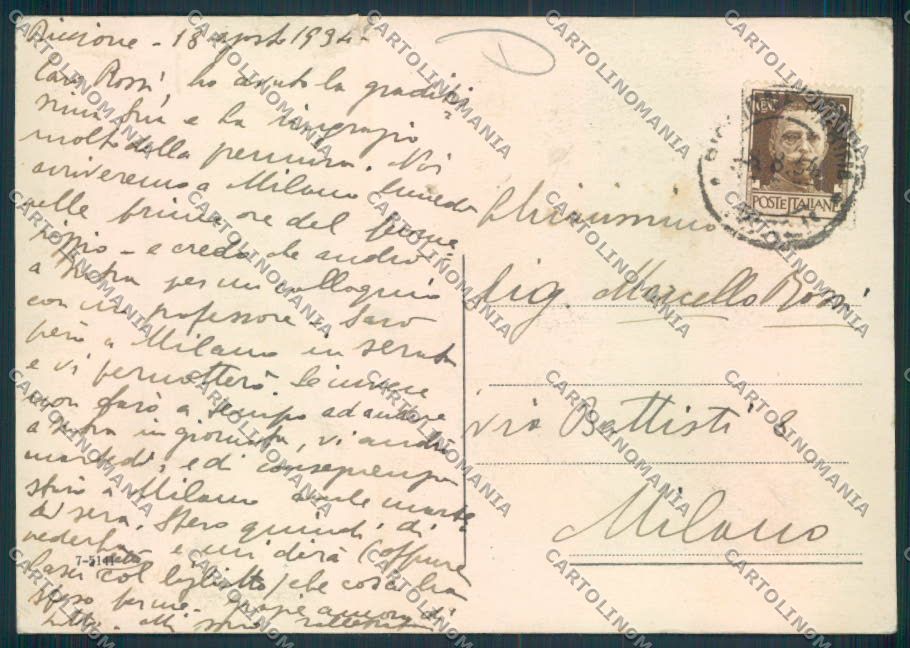 Riccione - 18 agosto 1934 -
Caro Rossi, ho avuto la graditis=
sima Sua e La ringrazio
molto della premura. Noi
arriveremo a Milano lunedì
nelle prime ore del pome=
riggio - e credo che andrò
a per un colloquio
con un professore. Sarò
però a Milano in serata
e vi pernotterò. Se invece
non farò a tempo ad andare
a in giornata, vi andrò
martedì, e di conseguenza
starò a Milano anche marte=
dì sera. Spero quindi di
vederLa e mi dirà (oppure
lasci col biglietto) che cosa ha
speso per me. Grazie ancora di
tutto. Mi
D
Chiarissimo
Sig. Marcello Rossi
via Battisti 8
Milano
POSTE ITALIANE
7-5141
CARTOLINOMANIA